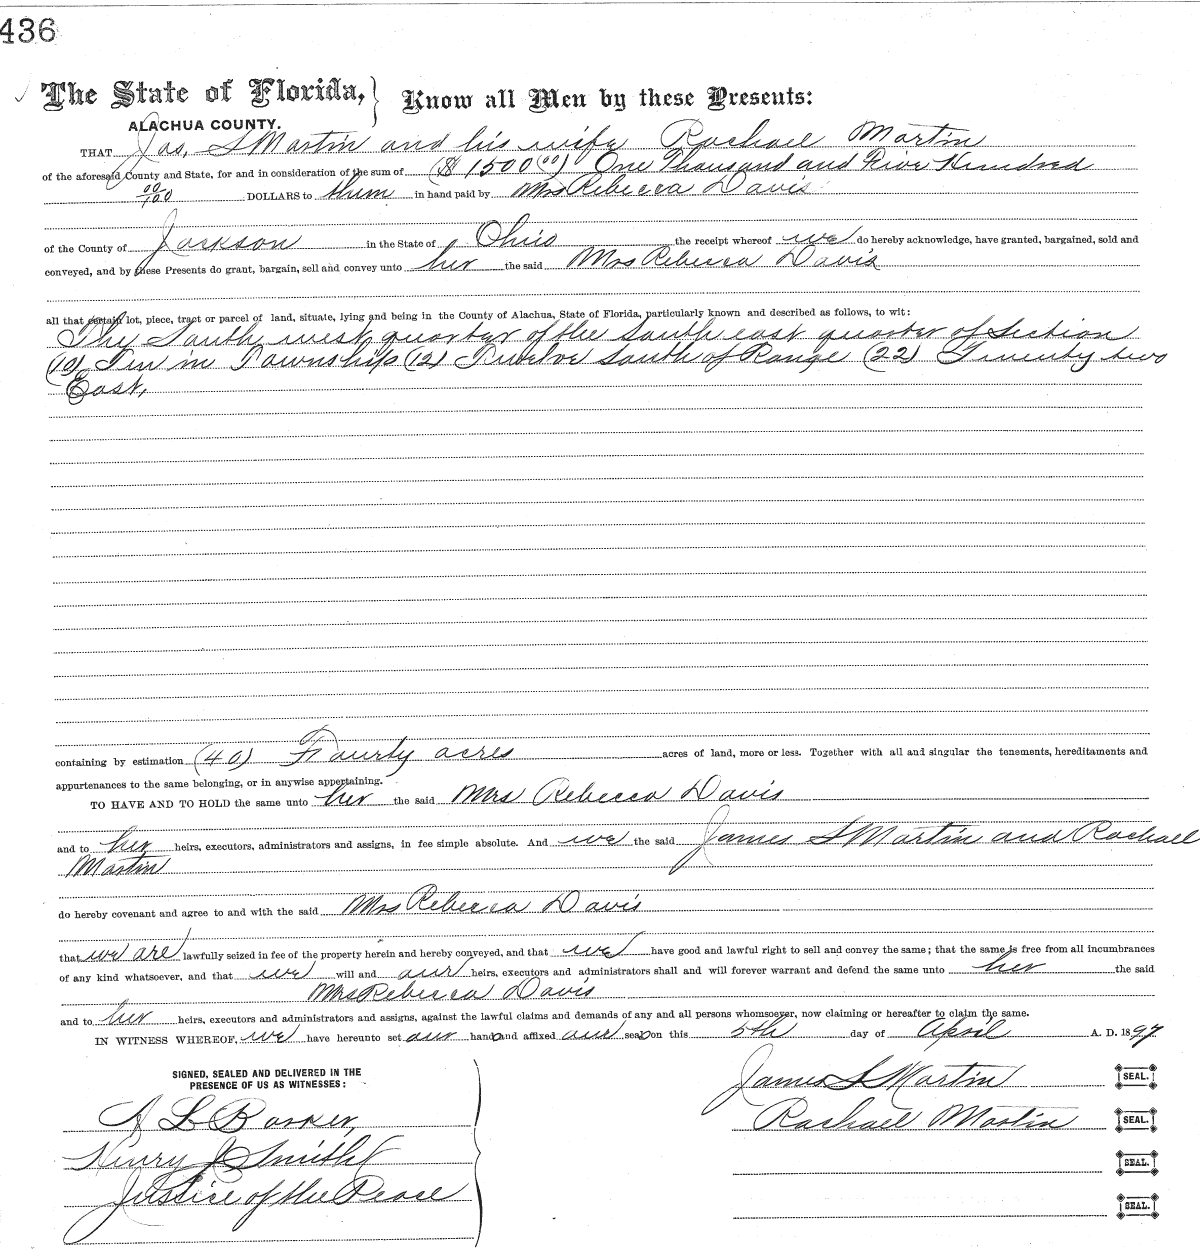 436
The State of Florida, } Know all Men by these Presents:
ALACHUA COUNTY.
THAT Jas, S Martin and his wife Rachael Martin
of the aforesaid County and State, for and in consideration of the sum of ($ 1500 (00)) One Thousand and Five Hundred
00/100 DOLLARS to them in hand paid by Mrs Rebecca Davis
of the County of Jackson in the State of Ohio the receipt whereof we do hereby acknowledge, have granted, bargained, sold and
conveyed, and by these Presents do grant, bargain, sell and convey unto her the said Mrs Rebecca Davis
all that certain lot, piece, tract or parcel of land, situate, lying and being in the County of Alachua, State of Florida, particularly known and described as follows, to wit:
Thy South west quarter of the South east quarter of Section
(10) Ten in Township (12) Twelve South of Range (22) Twenty two
East,
containing by estimation (40) Fourty acres acres of land, more or less. Together with all and singular the tenements, hereditaments and
appurtenances to the same belonging, or in anywise appertaining.
TO HAVE AND TO HOLD the same unto her the said Mrs Rebecca Davis
and to her heirs, executors, administrators and assigns, in fee simple absolute. And we the said James S Martin and Rachael
Martin
do hereby covenant and agree to and with the said Mrs Rebecca Davis
that we are lawfully seized in fee of the property herein and hereby conveyed, and that we have good and lawful right to sell and convey the same; that the same is free from all incumbrances
of any kind whatsoever, and that we will and our heirs, executors and administrators shall and will forever warrant and defend the same unto her the said
Mrs Rebecca Davis
and to her heirs, executors and administrators and assigns, against the lawful claims and demands of any and all persons whomsoever, now claiming or hereafter to claim the same.
IN WITNESS WHEREOF, we have hereunto set our hand and affixed our seal on this 5th day of April A. D. 1897
SIGNED, SEALED AND DELIVERED IN THE
PRESENCE OF US AS WITNESSES:
James S Martin SEAL.
A L Barker, Rachael Martin SEAL.
Henry J Smith SEAL.
Justice of the Peace SEAL.